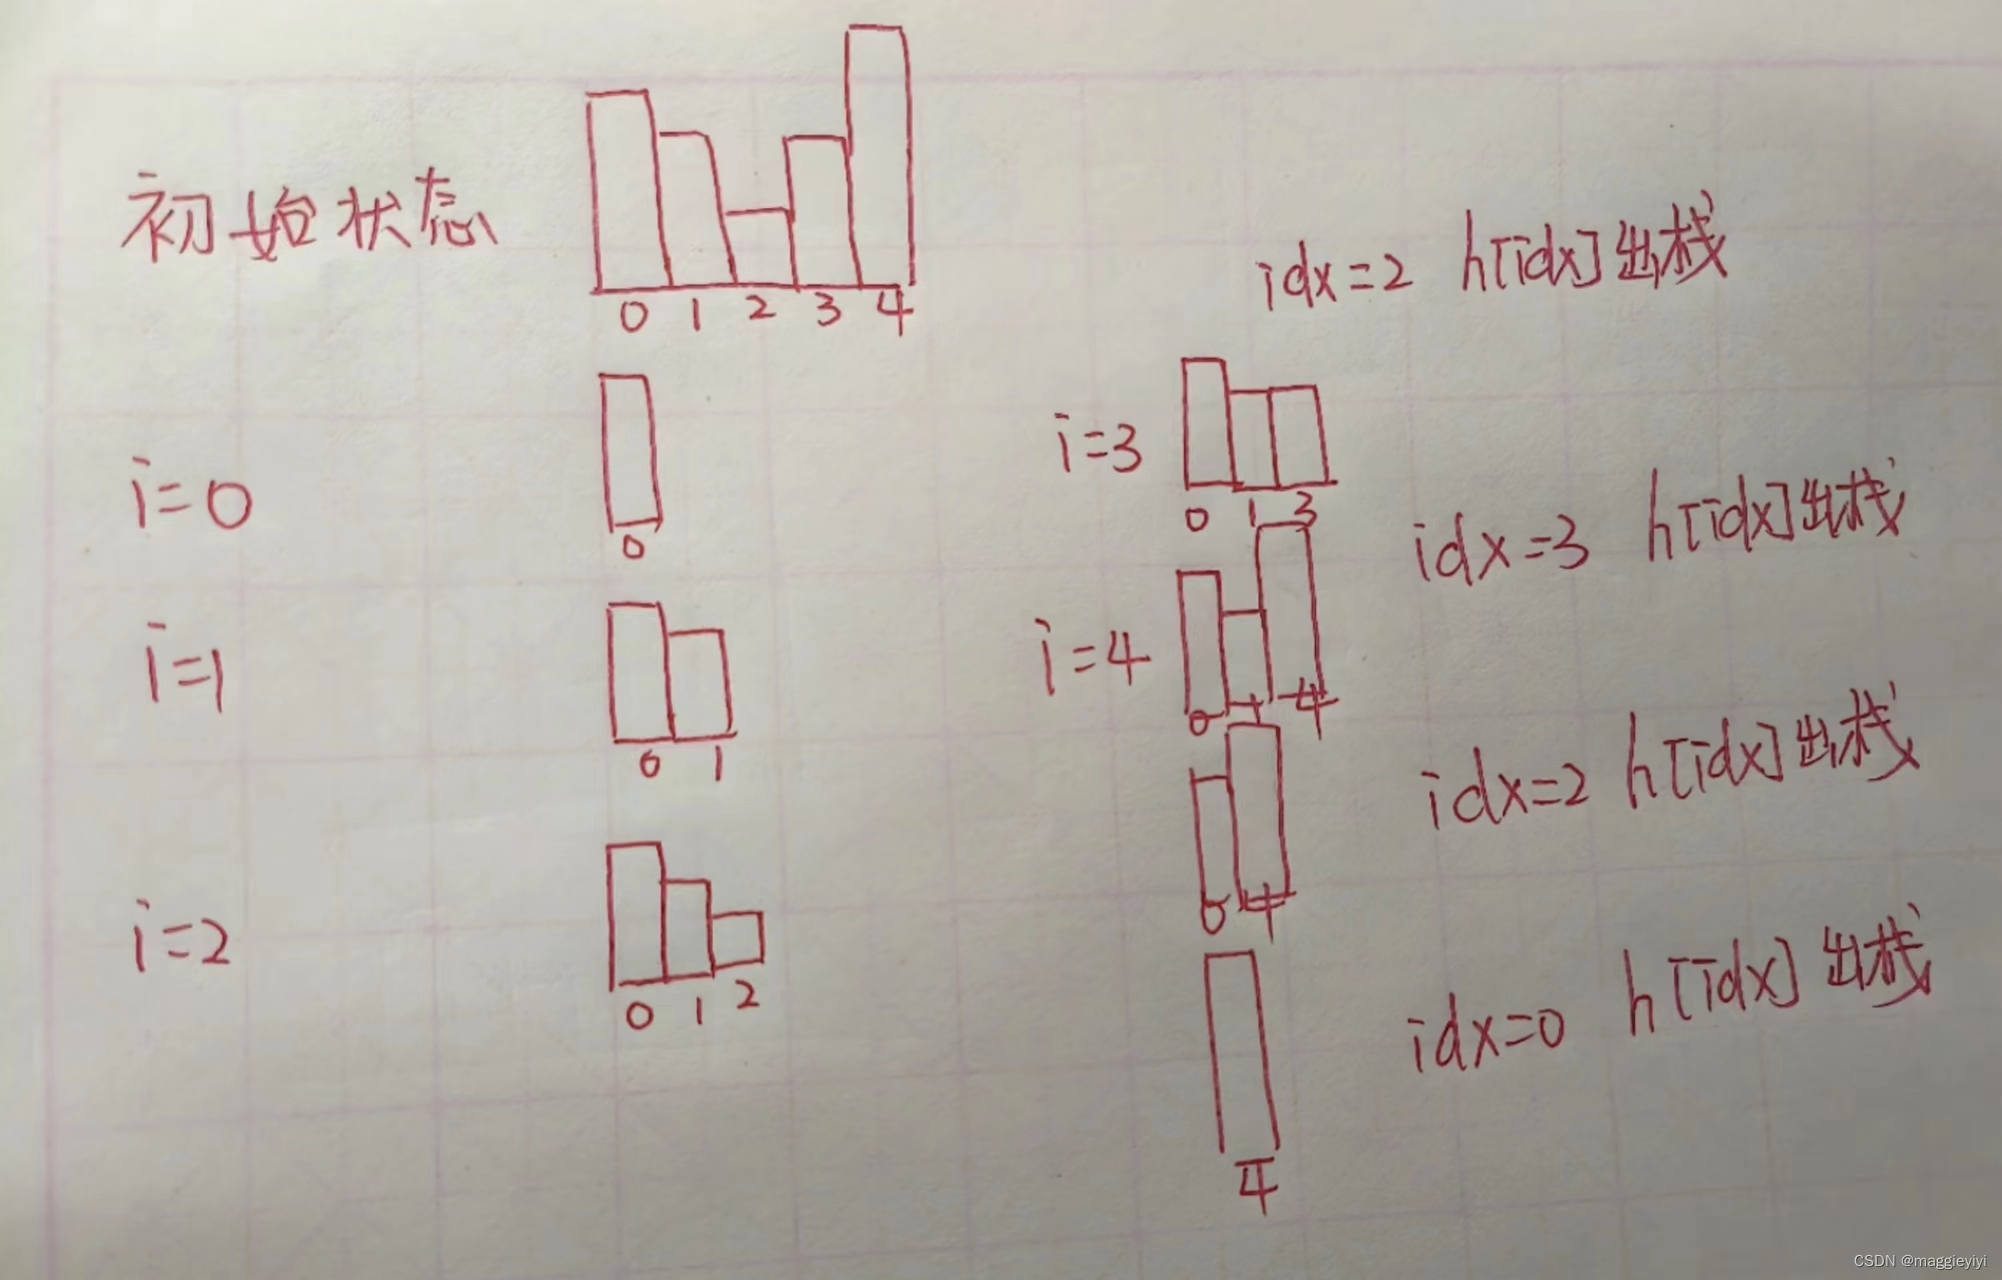 初始状态
0 1 2 3 4
i=0
0
i=1
0 1
i=2
0 1 2
idx=2 h[idx]出栈
i=3
0 1 3
idx=3 h[idx]出栈
i=4
0 1 4
idx=2 h[idx]出栈
0 4
idx=0 h[idx]出栈
4
CSDN @maggieyiyi